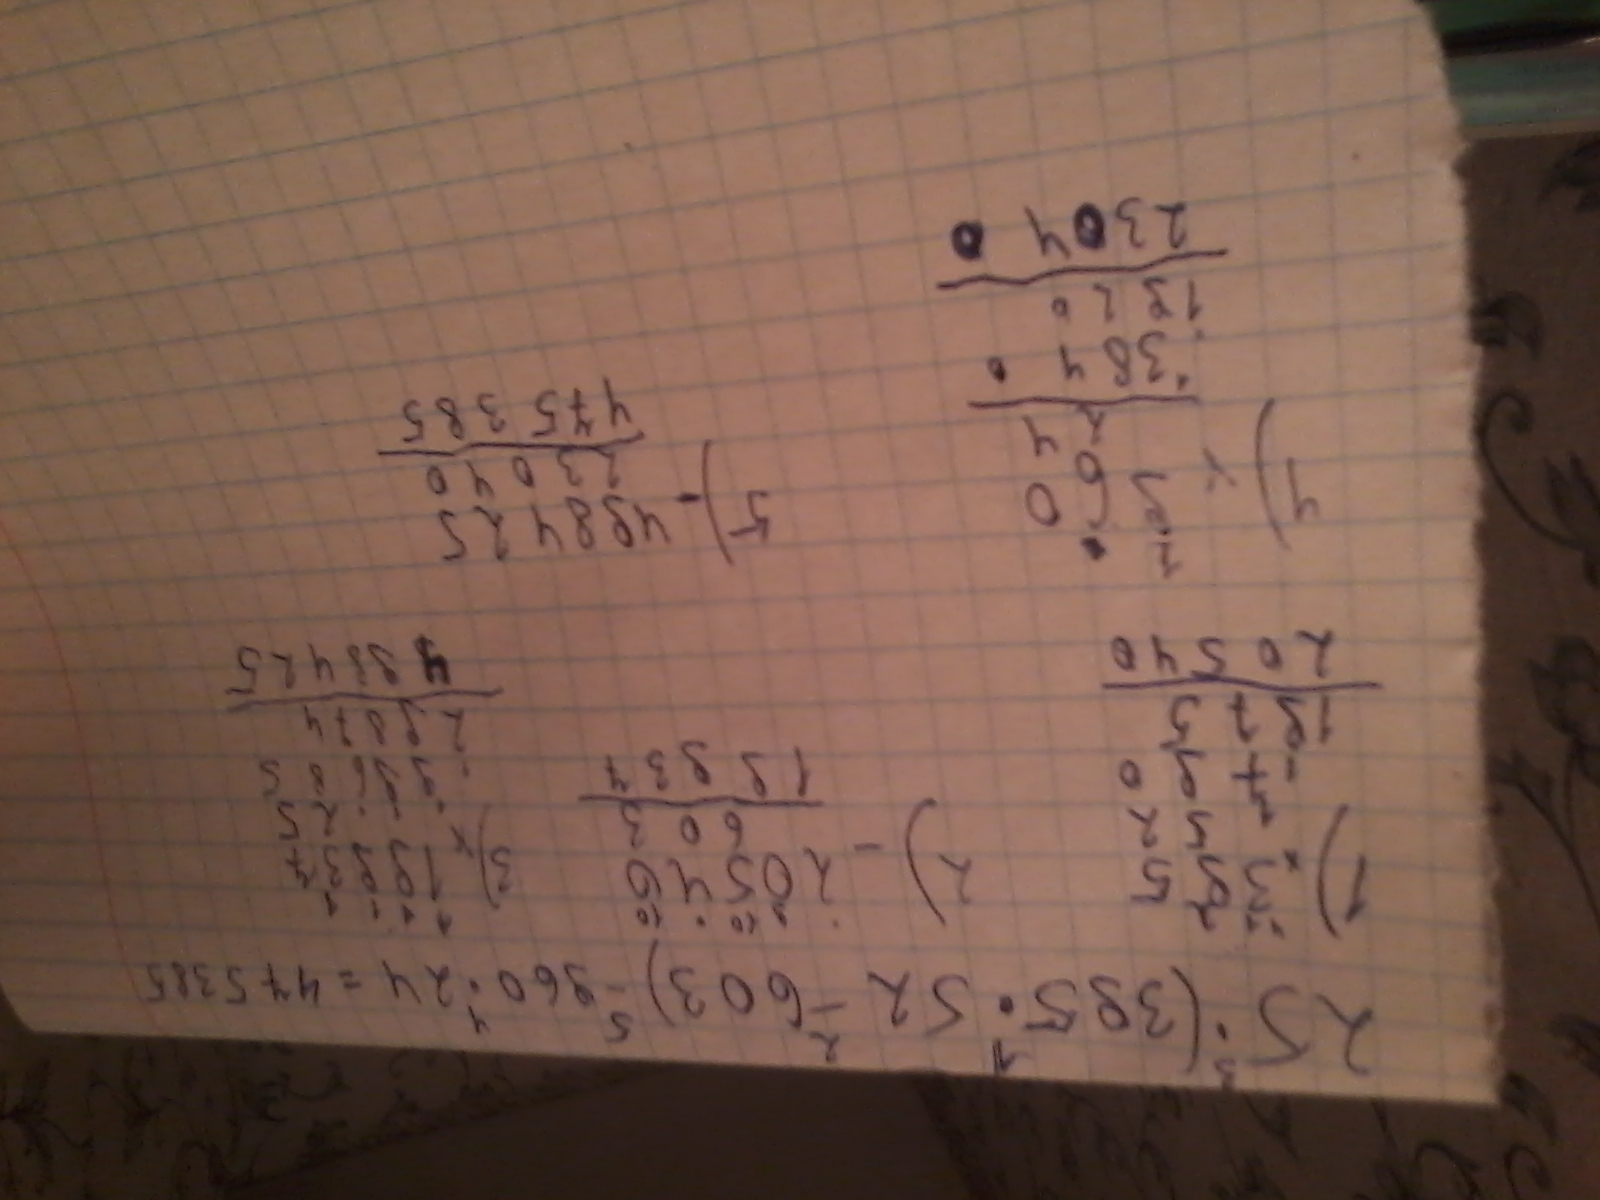 3 1 2 5 4
25·(395·52-603)-960·24=475385
1) × 395
52
790
1975
20540
2) - 20540
603
19937
3) × 19937
25
99685
29874
498425
4) × 960
24
3840
1920
23040
5) - 498425
23040
475385